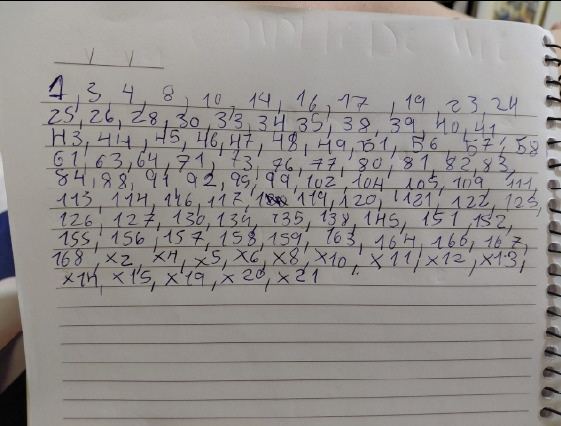 1, 3, 4, 8, 10, 14, 16, 17, 19, 23, 24
25, 26, 28, 30, 33, 34, 35, 38, 39, 40, 41
43, 44, 45, 46, 47, 48, 49, 51, 56, 57, 58
61, 63, 64, 71, 73, 76, 77, 80, 81, 82, 83,
84, 88, 91, 92, 95, 99, 102, 104, 105, 109, 111,
113, 114, 116, 117, 119, 120, 121, 122, 125,
126, 127, 130, 134, 135, 138, 145, 151, 152,
155, 156, 157, 158, 159, 163, 164, 166, 167,
168, x2, x4, x5, x6, x8, x10, x11, x12, x13,
x14, x15, x19, x20, x21